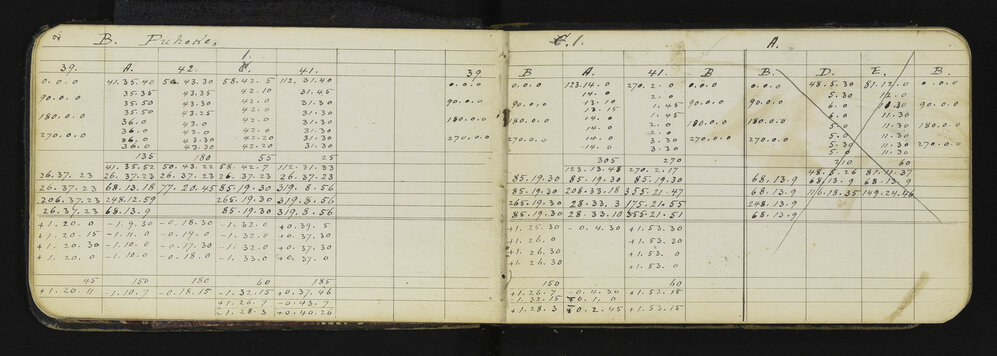 2
B. Puheke.
1.
39. A. 42. C. 41. 39
0.0.0 41.35.40 50.43.30 58.42.5 112.31.40 0.0.0
35.35 43.35 42.10 31.45
90.0.0 35.50 43.30 42.0 31.30 90.0.0
35.50 43.25 42.0 31.30
180.0.0 36.0 43.0 42.0 31.30 180.0.0
36.0 43.0 42.0 31.30
270.0.0 36.0 43.30 42.20 31.30 270.0.0
36.0 43.30 42.20 31.30
135 180 55 25
41.35.52 50.43.22 58.42.7 112.31.33
26.37.23 26.37.23 26.37.23 26.37.23 26.37.23
26.37.23 68.13.18 77.20.45 85.19.30 319.8.56
206.37.23 248.12.59 265.19.30 319.8.56
26.37.23 68.13.9 85.19.30 319.8.56
+1.20.0 -1.9.30 -0.18.30 -1.32.0 +0.39.5
+1.20.15 -1.11.0 -0.19.0 -1.32.0 +0.37.30
+1.20.30 -1.10.0 -0.17.30 -1.32.0 +0.37.30
+1.20.0 -1.10.0 -0.18.0 -1.33.0 +0.37.0
45 150 180 60 185
+1.20.11 -1.10.7 -0.18.15 -1.32.15 +0.37.46
+1.26.7 -0.43.7
-1.28.3 +0.40.26
C.1. A.
B A. 41. B B. D. E. B.
0.0.0 123.14.0 270.2.0 0.0.0 0.0.0 48.5.30 81.12.0 0.0.0
14.0 2.0 5.30 12.0
90.0.0 13.10 1.45 90.0.0 90.0.0 6.0 11.30 90.0.0
13.15 2.0 6.0 11.30
180.0.0 14.0 2.0 180.0.0 180.0.0 5.0 11.30 180.0.0
14.0 2.0 5.0 11.30
270.0.0 14.0 3.30 270.0.0 270.0.0 5.30 11.30 270.0.0
14.0 3.30 5.0 11.30
305 270 210 60
123.13.48 270.2.17 48.5.26 81.11.37
85.19.30 85.19.30 85.19.30 68.13.9 68.13.9 68.13.9
85.19.30 208.33.18 355.21.47 68.13.9 116.18.35 149.24.46
265.19.30 28.33.3 175.21.55 248.13.9
85.19.30 28.33.10 355.21.51 68.13.9
+1.25.30 -0.4.30 +1.53.30
+1.26.0 +1.53.0
+1.26.30 +1.53.30
+1.26.30 +1.53.0
150 60
+1.26.7 -0.4.30 +1.53.15
+1.32.15 -0.1.0
+1.28.3 -0.2.45 +1.53.15